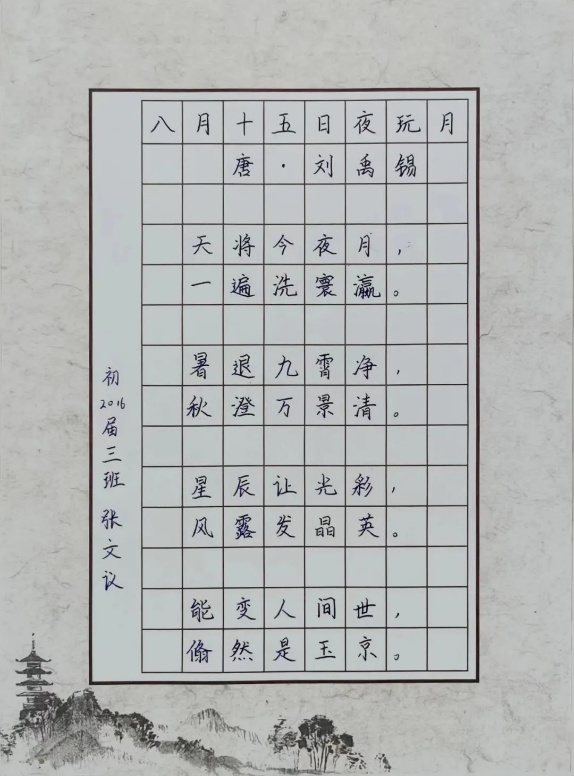 八月十五日夜玩月
唐·刘禹锡
天将今夜月，
一遍洗寰瀛。
暑退九霄净，
秋澄万景清。
星辰让光彩，
风露发晶英。
能变人间世，
翛然是玉京。
初2016届三班 张文议